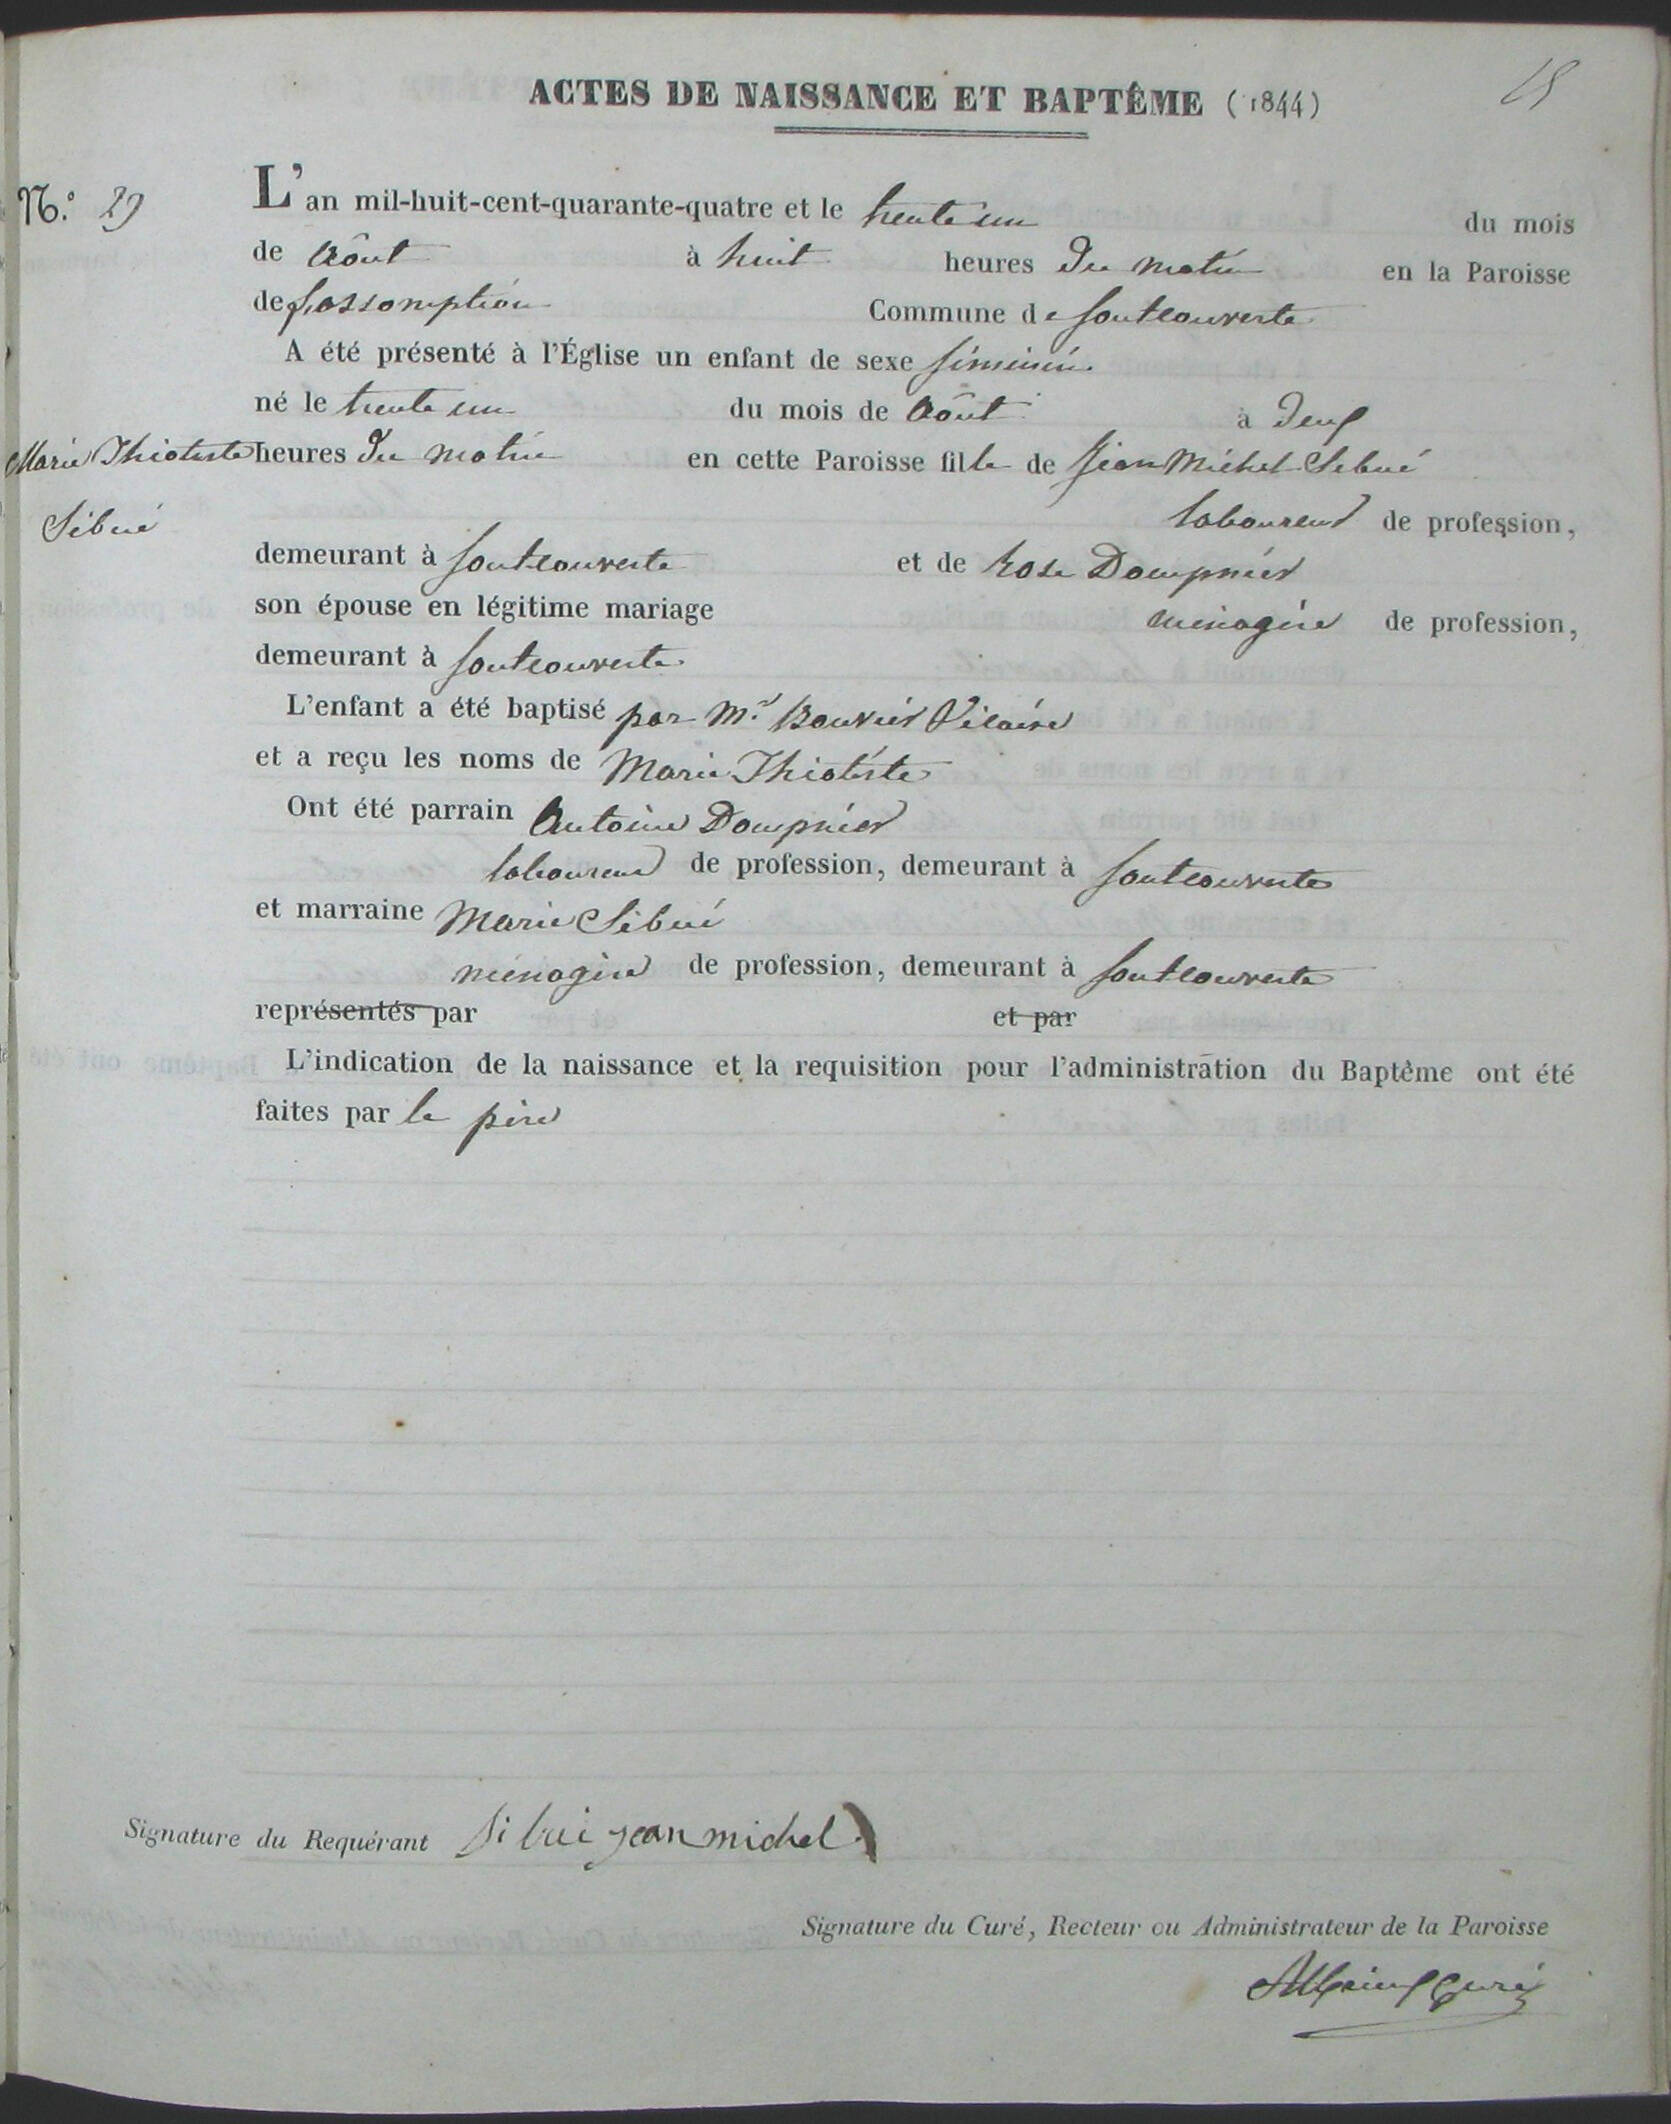 ACTES DE NAISSANCE ET BAPTÊME (1844)
N.° 29
L'an mil-huit-cent-quarante-quatre et le trente un du mois
de Aôut à huit heures du matin en la Paroisse
de L'assomption Commune de fontcouverte
A été présenté à l'Église un enfant de sexe féminin
né le trente un du mois de Aôut à deux
Marie Thiotiste heures du matin en cette Paroisse fille de Jean Michel Sibué
Sibué
laboureur de profession,
demeurant à fontcouverte et de Rose Dompnier
son épouse en légitime mariage ménagère de profession,
demeurant à fontcouverte
L'enfant a été baptisé par Mr Bouvier Vicaire
et a reçu les noms de Marie Thiotiste
Ont été parrain Antoine Dompnier
laboureur de profession, demeurant à fontcouverte
et marraine Marie Sibué
ménagère de profession, demeurant à fontcouverte
représentés par et par
L'indication de la naissance et la requisition pour l'administration du Baptême ont été
faites par le père
Signature du Requérant Sibué jean michel
Signature du Curé, Recteur ou Administrateur de la Paroisse
Curé